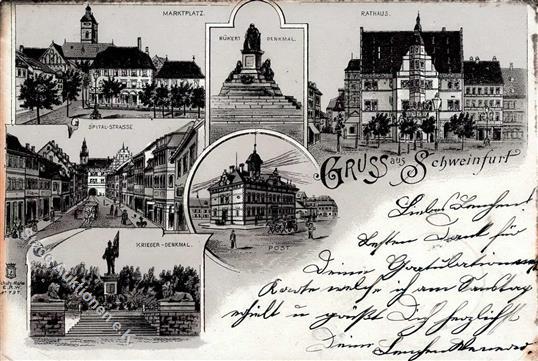 MARKTPLATZ.
RÜKERT DENKMAL.
RATHAUS.
SPITAL-STRASSE
GRUSS aus Schweinfurt
POST
KRIEGER-DENKMAL.
Liebes
besten Dank für
Deine Gratulations
Karte welche ich am Samstag
erhielt u grüßt Dich herzlichst
Deine